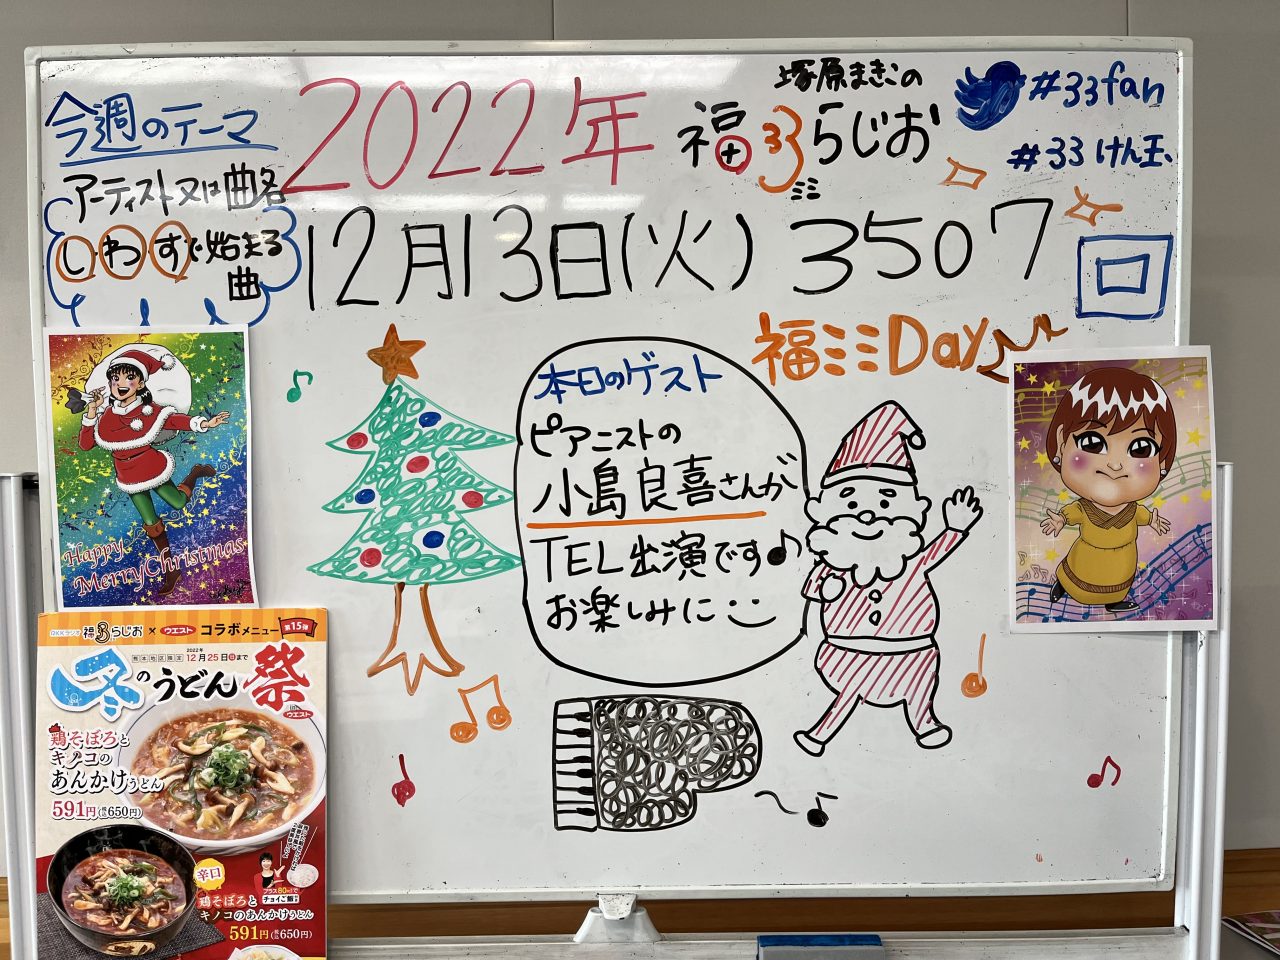 今週のテーマ
アーティスト又は曲名
し・わ・すで始まる
曲
2022年
塚原まきこの
福+33らじお
#33fan
#33けん玉
12月13日(火) 3507回
福ミミDay
本日のゲスト
ピアニストの
小島良喜さんが
TEL出演です♪
お楽しみに
Happy
Merry Christmas
RKKラジオ 福33らじお × ウエスト コラボメニュー 第15弾
熊本地区限定 2022年12月25日日まで
冬のうどん祭
ウエスト
鶏そぼろと
キノコの
あんかけうどん
591円(税込650円)
辛口
鶏そぼろと
キノコのあんかけうどん
591円(税込650円)
プラス80円で
チョイご飯